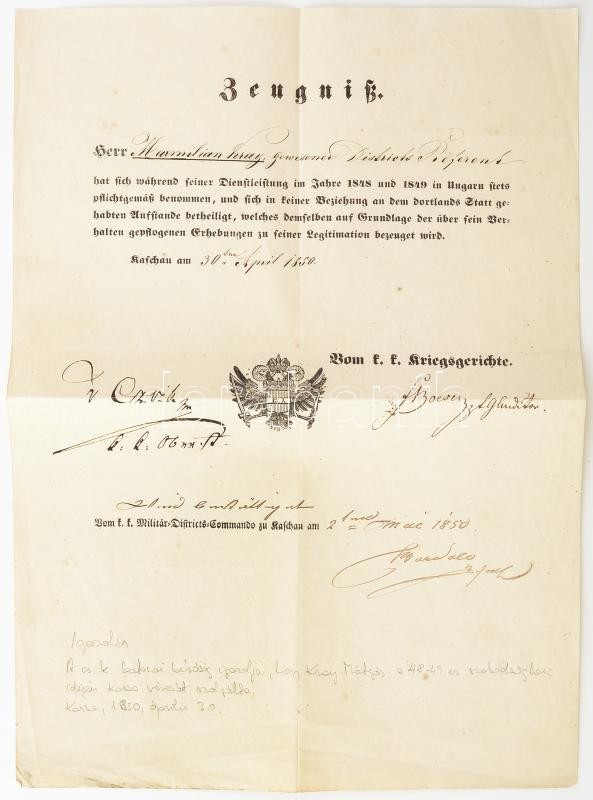 Zeugniß.
Herr Maxmilian Kray, gewesener Districts Referent
hat sich während seiner Dienstleistung im Jahre 1848 und 1849 in Ungarn stets
pflichtgemäß benommen, und sich in keiner Beziehung an dem dortlands Statt ge-
habten Aufstande betheiligt, welches demselben auf Grundlage der über sein Ver-
halten gepflogenen Erhebungen zu seiner Legitimation bezeuget wird.
Kaschau am 30ten April 1850.
Vom k. k. Kriegsgerichte.
k: k: Oberst.
Wird bestättiget
Vom k. k. Militär-Districts-Commando zu Kaschau am 2ten Mai 1850.
Igazolás
A cs. k. bíróság igazolja, hogy Kray Mátyás a '48-49 es szabadságharc
idején Kassa városát szolgálta.
Kassa, 1850, április 30.